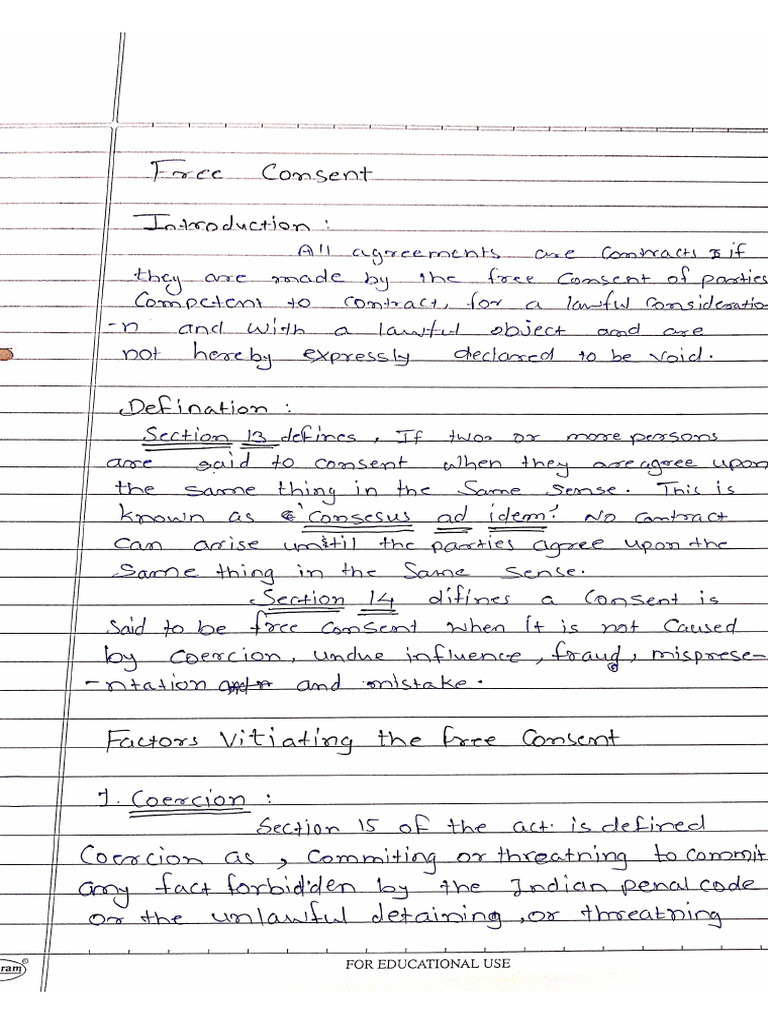 Free Consent
Introduction :
All agreements are contracts if
they are made by the free consent of parties
Competent to contract, for a lawful consideratio-
-n and with a lawful object and are
not hereby expressly declared to be void.
Defination :
Section 13 defines, If two or more persons
are said to consent when they are agree upon
the same thing in the same sense. This is
known as 'Consesus ad idem'. No contract
can arise until the parties agree upon the
same thing in the same sense.
Section 14 difines a consent is
said to be free consent when it is not caused
by coercion, undue influence, fraud, misprese-
-ntation and mistake.
Factors Vitiating the free Consent
1. Coercion :
Section 15 of the act. is defined
Coercion as, Commiting or threatning to commit
any fact forbidden by the Indian penal code
or the unlawful detaining, or threatning
ram® FOR EDUCATIONAL USE